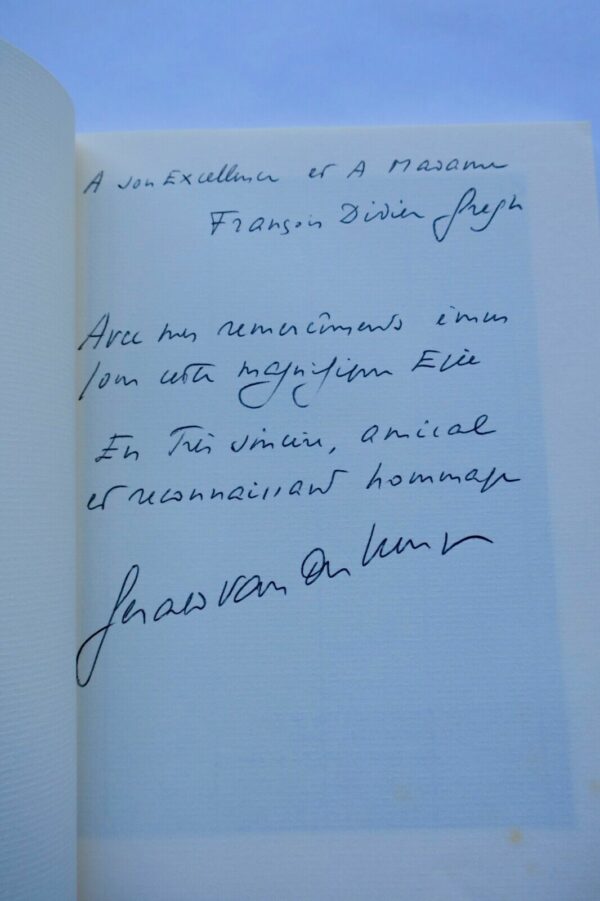 A son Excellence et A Madame
François Didier Gregh
Avec mes remercîments émus
pour cette magnifique Epée
En Très sincère, amical
et reconnaissant hommage
Gerald van der Kemp